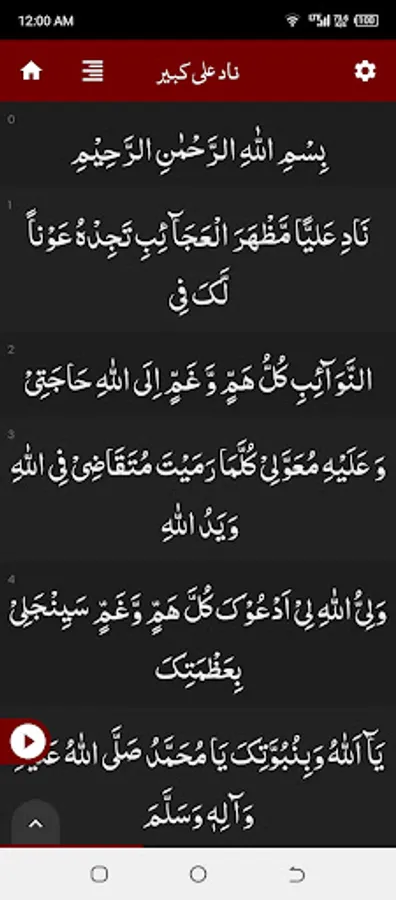 12:00 AM
ناد علی کبیر
0
بِسْمِ اللهِ الرَّحْمٰنِ الرَّحِيْمِ
1
نَادِ عَلِيًّا مَّظْهَرَ الْعَجَآئِبِ تَجِدْهُ عَوْناً
لَّكَ فِی
2
النَّوَآئِبِ كُلُّ هَمٍّ وَّ غَمٍّ اِلَی اللهِ حَاجَتِیْ
3
وَ عَلَيْهِ مُعَوَّلِیْ كُلَّمَا رَمَيْتَ مُتَقَاضِیْ فِی اللهِ
وَ يَدُ اللهِ
4
وَلِیُّ اللهِ لِیْ اَدْعُوْكَ كُلَّ هَمٍّ وَّغَمٍّ سَيَنْجَلِیْ
بِعَظْمَتِكَ
يَآ اَللهُ وَبِنُبُوَّتِكَ يَا مُحَمَّدُ صَلَّی اللهُ
وَآلِهٖ وَسَلَّمَ